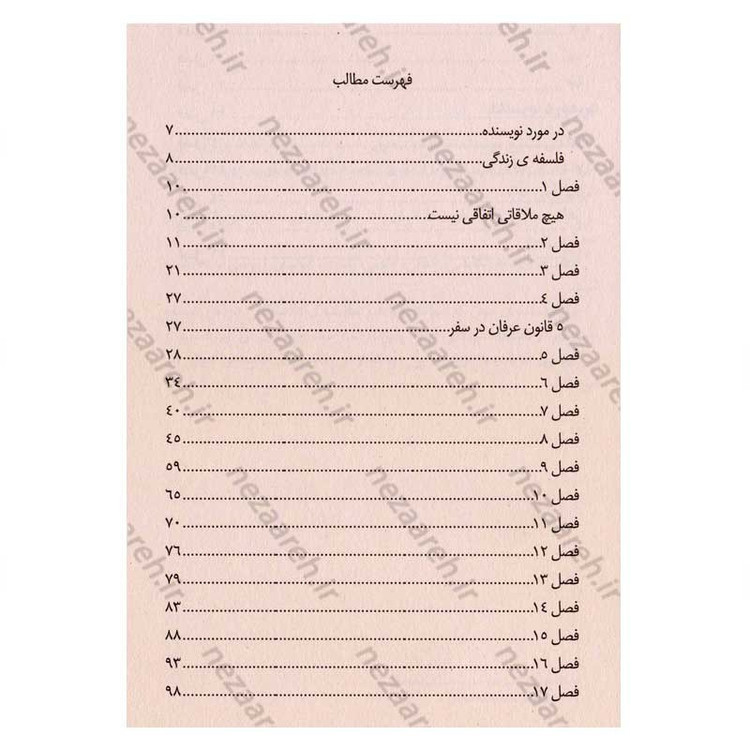 فهرست مطالب
در مورد نویسنده................۷
فلسفه ی زندگی................۸
فصل ۱................۱۰
هیچ ملاقاتی اتفاقی نیست................۱۰
فصل ۲................۱۱
فصل ۳................۲۱
فصل ٤................۲۷
۵ قانون عرفان در سفر................۲۷
فصل ۵................۲۸
فصل ٦................۳٤
فصل ۷................٤۰
فصل ۸................٤۵
فصل ۹................۵۹
فصل ۱۰................٦۵
فصل ۱۱................۷۰
فصل ۱۲................۷٦
فصل ۱۳................۷۹
فصل ۱٤................۸۳
فصل ۱۵................۸۸
فصل ۱٦................۹۳
فصل ۱۷................۹۸
nezaareh.ir